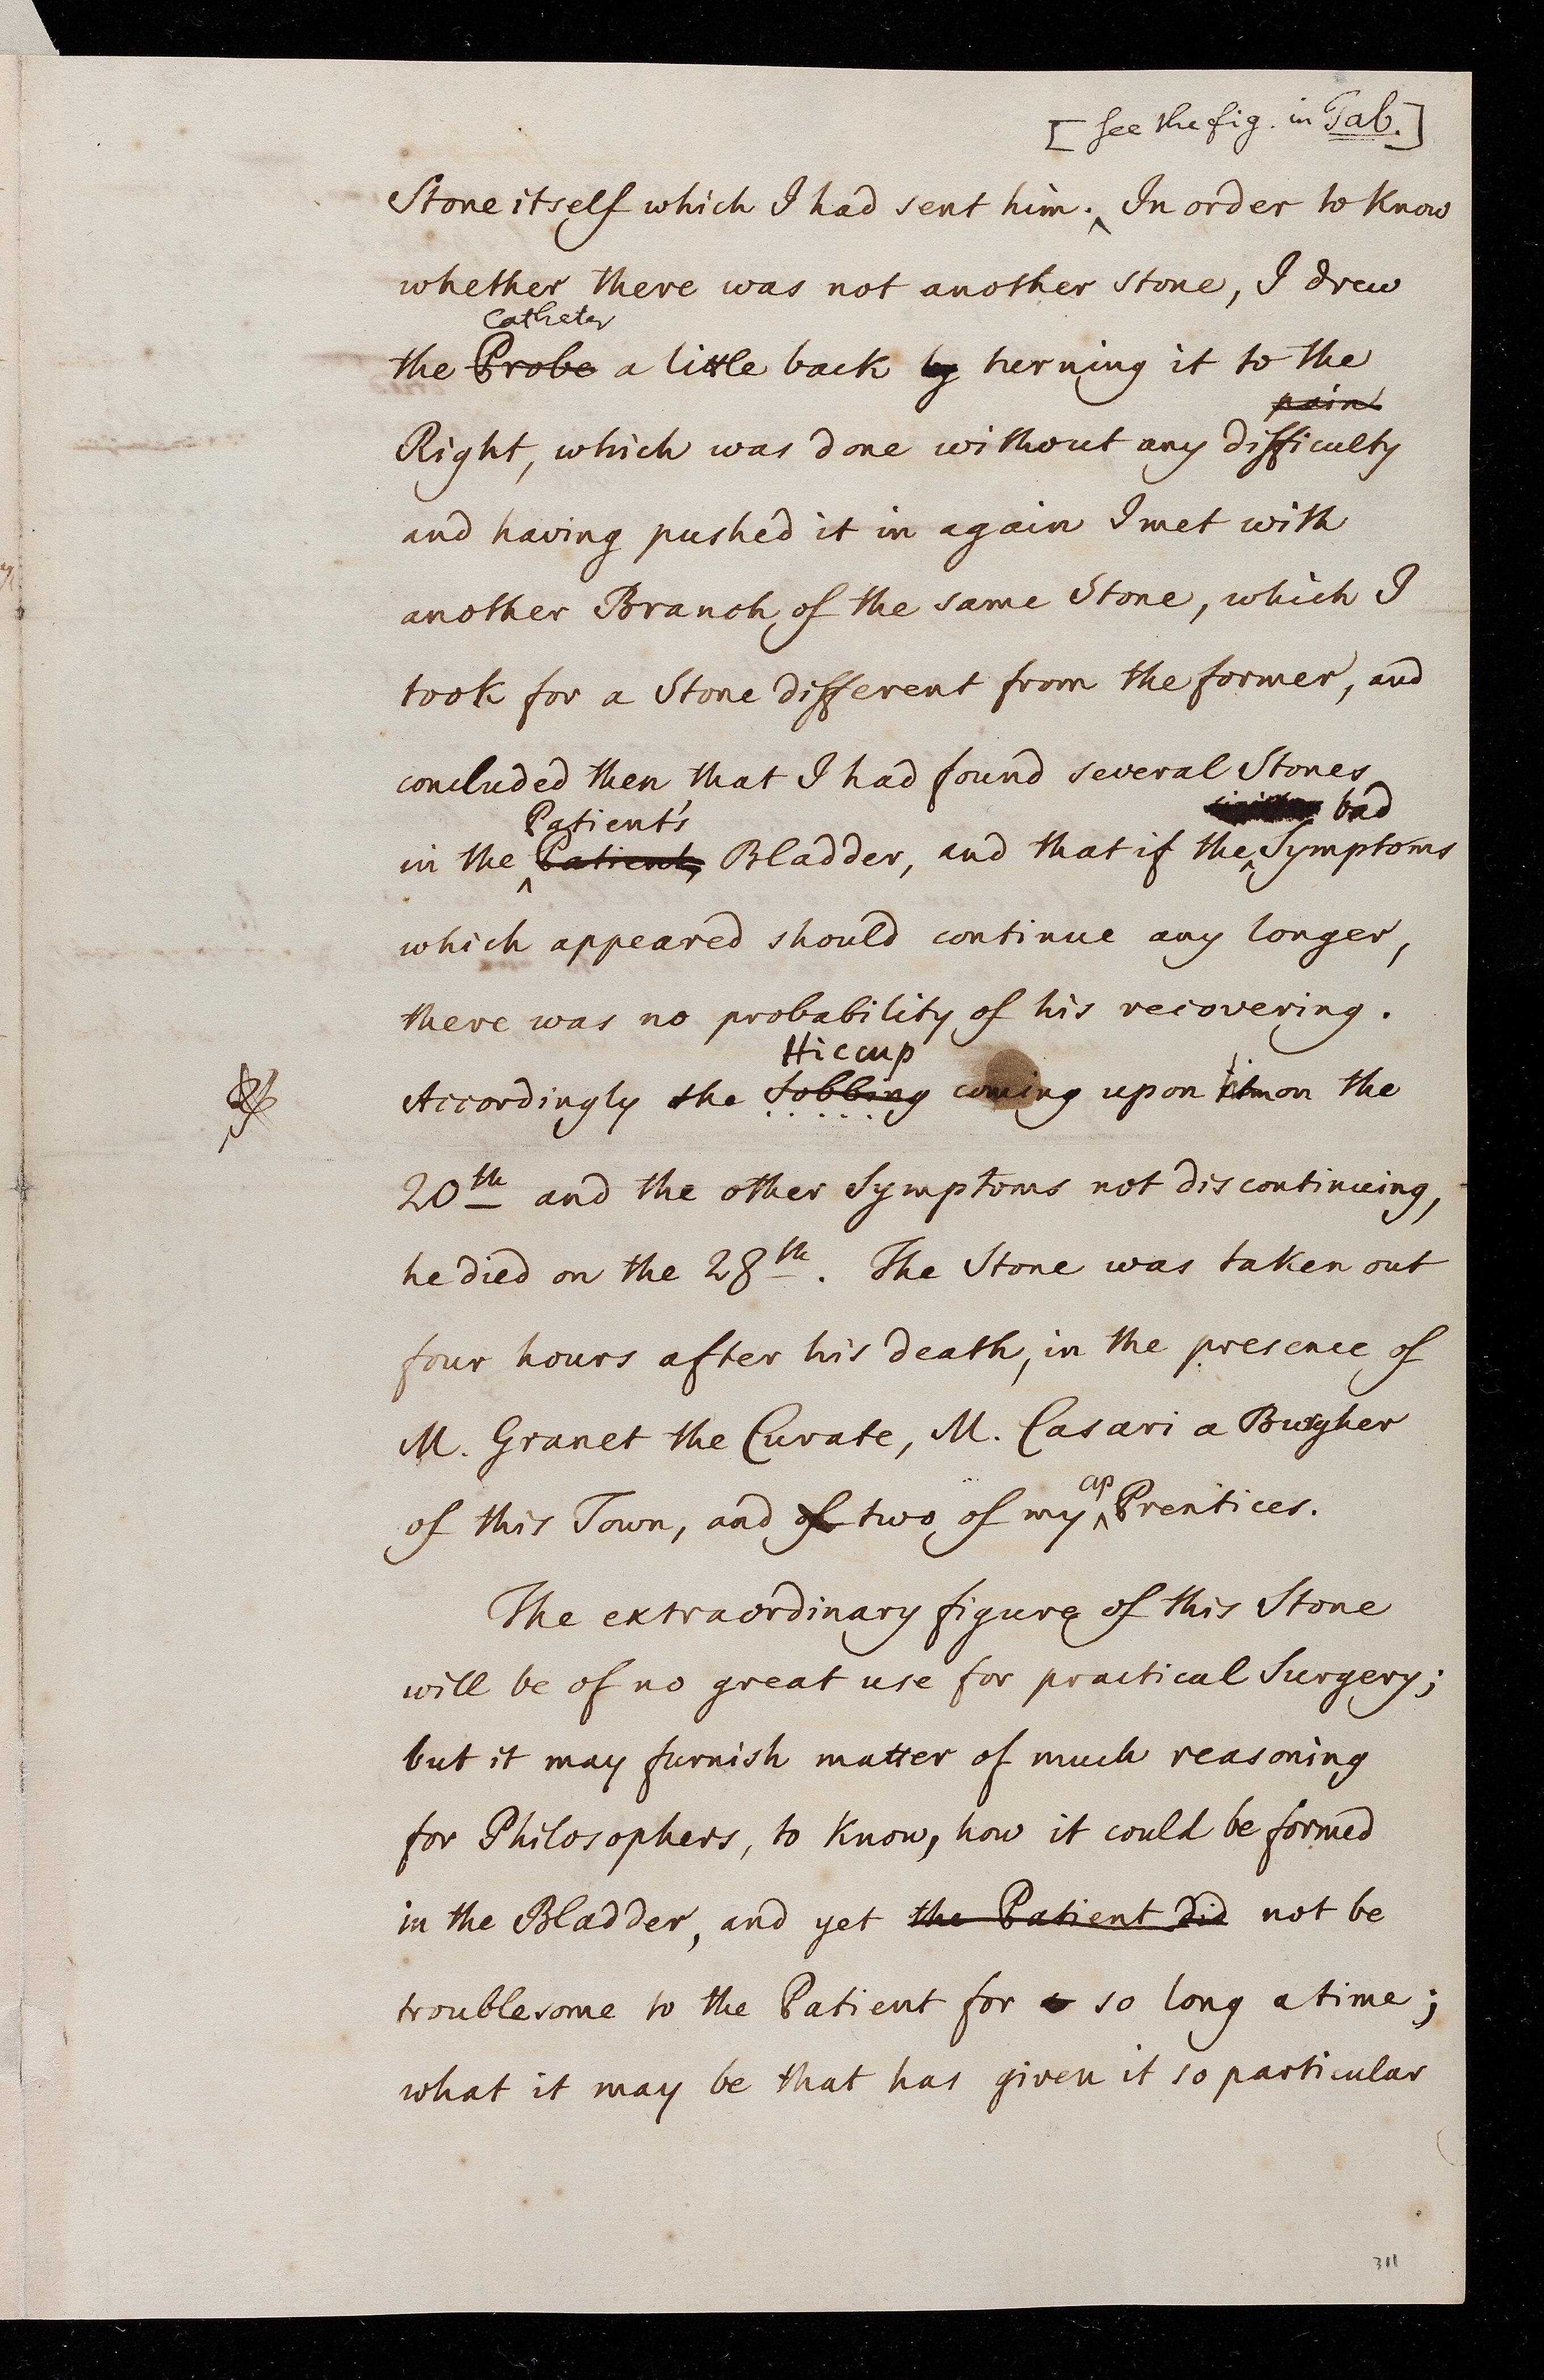 [See the fig. in Tab.]
Stone itself which I had sent him. ^ In order to Know
whether there was not another stone, I drew
Catheter
the Probe a little back by turning it to the
pain
Right, which was done without any difficulty
and having pushed it in again I met with
another Branch of the same Stone, which I
took for a Stone different from the former, and
concluded then that I had found several Stones
Patient's bad
in the ^ Patients Bladder, and that if the ^ Symptoms
which appeared should continue any longer,
there was no probability of his recovering.
Hiccup
Accordingly the Sobbing coming upon him on the
20th and the other Symptoms not discontinuing,
he died on the 28th. The Stone was taken out
four hours after his death, in the presence of
M. Granet the Curate, M. Casari a Burgher
ap
of this Town, and of two of my ^ Prentices.
The extraordinary figure of this Stone
will be of no great use for practical Surgery;
but it may furnish matter of much reasoning
for Philosophers, to Know, how it could be formed
in the Bladder, and yet the Patient did not be
troublesome to the Patient for a so long a time;
what it may be that has given it so particular
311